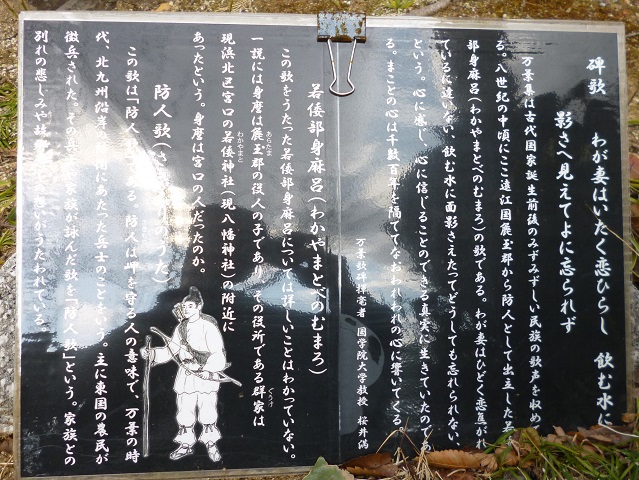 碑歌　わが妻はいたく恋ひらし　飲む水に
影さへ見えてよに忘られず
万葉集は古代国家誕生前後のみずみずしい民族の歌声を収めて
る。八世紀の中頃にここ遠江国麁玉郡から防人として出立した若
部身麻呂(わかやまとべのむまろ)の歌である。わが妻はひどく恋焦がれ
ているに違いない、飲む水に面影さえたってどうしても忘れられない、
という。心に感じ、心に信じることのできる真実に生きていたのであ
る。まことの心は千数百年を隔ててなおわれわれの心に響いてくる。
万葉歌碑揮毫者　国学院大学教授　桜井満
若倭部身麻呂(わかやまとべのむまろ)
この歌をうたった若倭部身麻呂については詳しいことはわかっていない。
一説には身麿は麁玉郡の役人の子であり、その役所である群家は
現浜北区宮口の若倭神社(現八幡神社)の附近に
あったという。身麿は宮口の人だったのか。
防人歌(さ　うた)
この歌は「防人　る。防人は岬を守る人の意味で、万葉の時
代、北九州沿岸　にあたった兵士のことをいう。主に東国の農民が
徴兵された。その兵士　族が詠んだ歌を「防人歌」という。家族との
別れの悲しみや　思いがうたわれている。